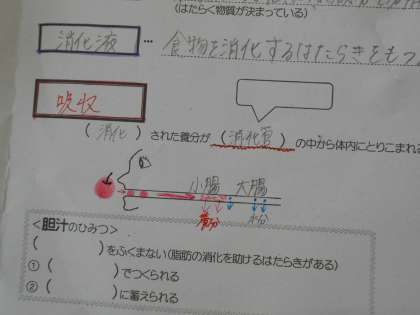 (はたらく物質が決まっている)
消化液 … 食物を消化するはたらきをもつ
吸収
(消化)された養分が(消化管)の中から体内にとりこまれ
小腸 大腸
養分 水分
<胆汁のひみつ>
( )をふくまない(脂肪の消化を助けるはたらきがある)
①( )でつくられる
②( )に蓄えられる